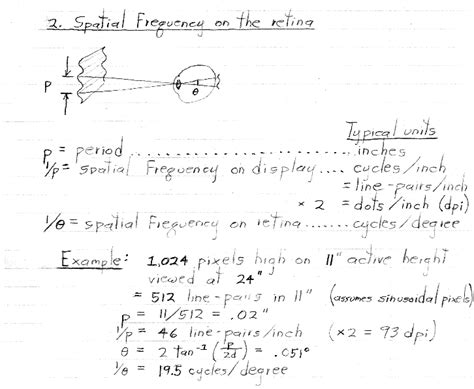 2. Spatial Frequency on the retina
P
θ
Typical units
p = period .................... inches
1/p = spatial Frequency on display.... cycles/inch
= line-pairs/inch
× 2 = dots/inch (dpi)
1/θ = spatial Frequency on retina ....... cycles/degree
Example: 1,024 pixels high on 11" active height
viewed at 24"
= 512 line-pairs in 11" (assumes sinusoidal pixels)
p = 11/512 = .02"
1/p = 46 line-pairs/inch (×2 = 93 dpi)
θ = 2 tan⁻¹ (p/2d) = .051°
1/θ = 19.5 cycles/degree